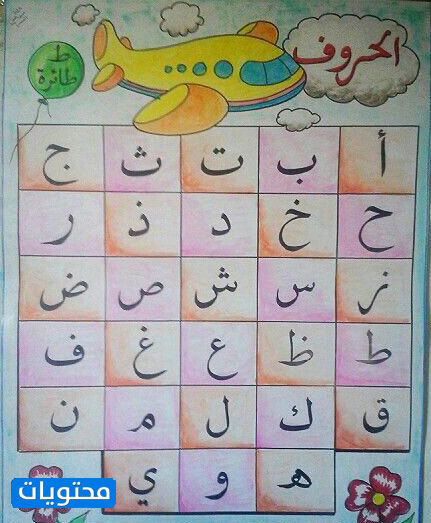 الحروف
ط
طائرة
أ ب ت ث ج
ح خ د ذ ر
ز س ش ص ض
ط ظ ع غ ف
ق ك ل م ن
هـ و ي
محتويات